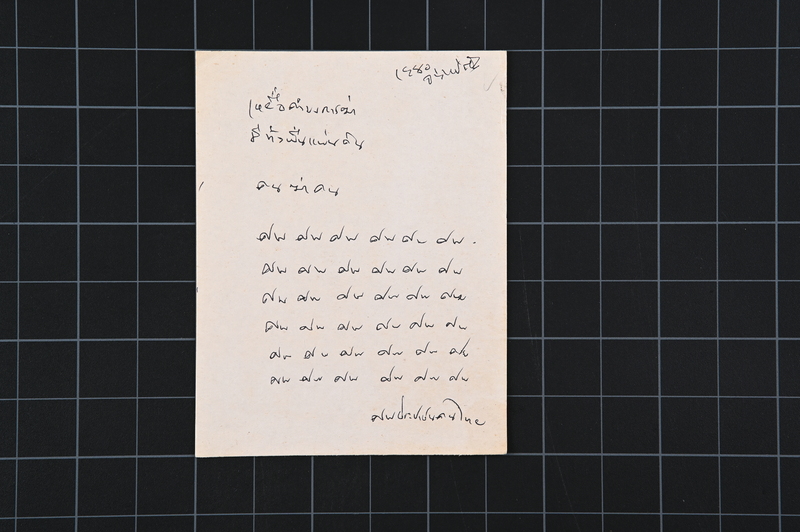 เมื่อคำบงการฆ่า
มีทั่วผืนแผ่นดิน
คน ฆ่า คน
ศพ ศพ ศพ ศพ ศพ ศพ
ศพ ศพ ศพ ศพ ศพ ศพ
ศพ ศพ ศพ ศพ ศพ ศพ
ศพ ศพ ศพ ศพ ศพ ศพ
ศพ ศพ ศพ ศพ ศพ ศพ
ศพ ศพ ศพ ศพ ศพ ศพ
ศพประชาชนคนไทย